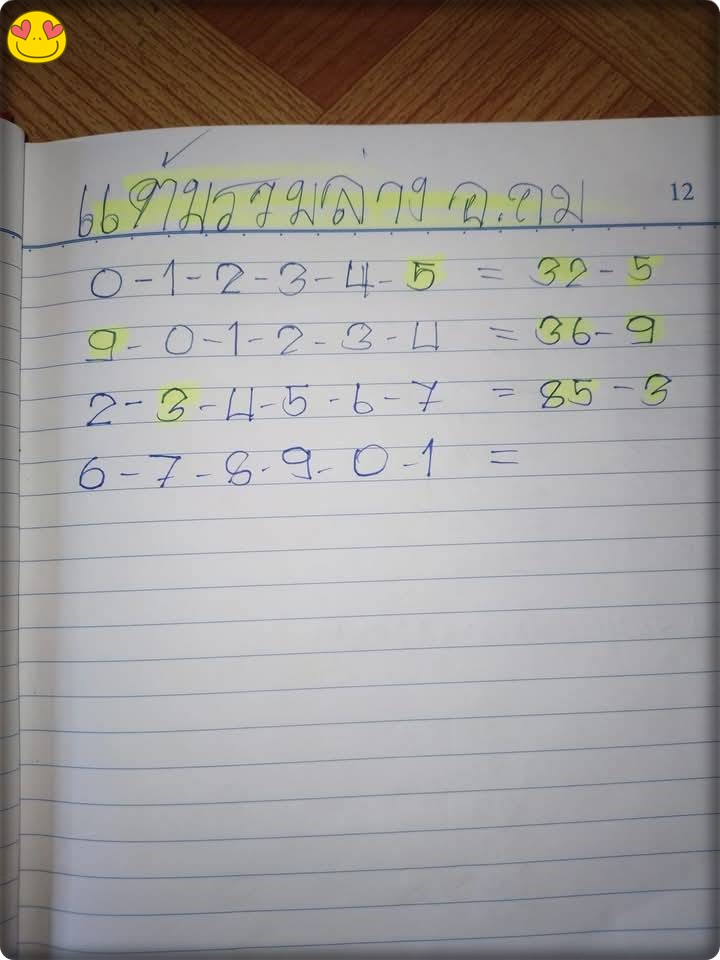 แต้มรวมล่าง อ.ถม
12
0-1-2-3-4-5 = 32-5
9-0-1-2-3-4 = 36-9
2-3-4-5-6-7 = 85-3
6-7-8-9-0-1 =